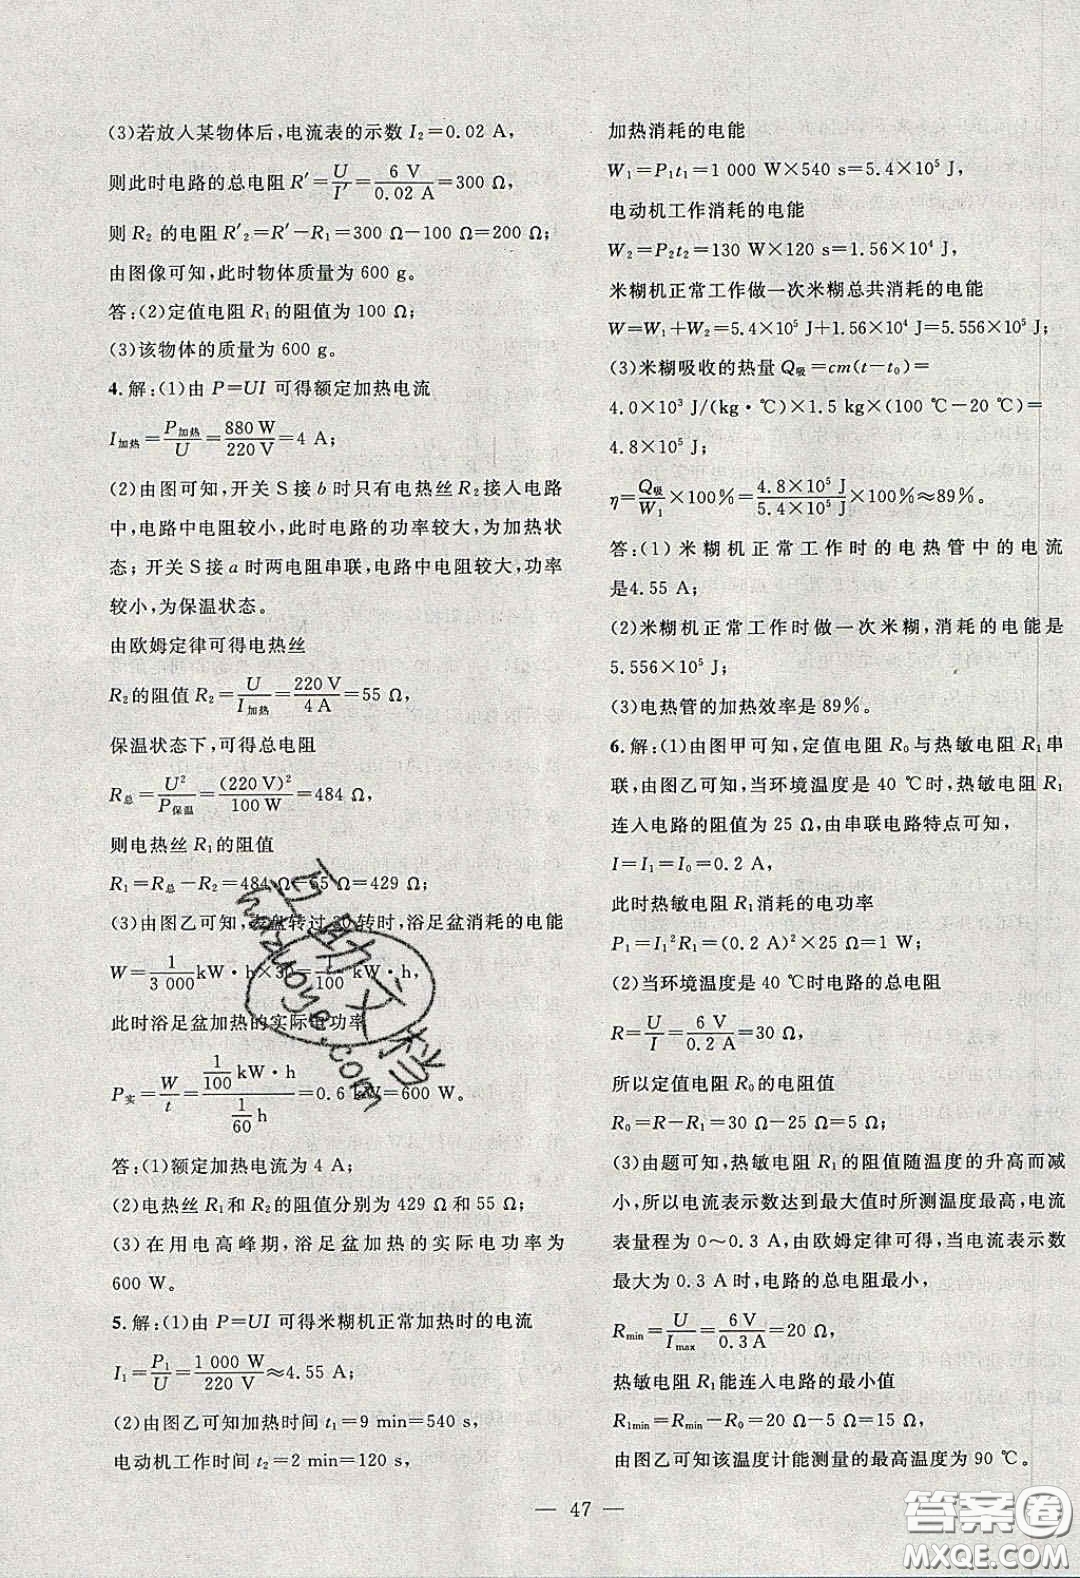 (3)若放入某物体后,电流表的示数 I₂=0.02 A,
则此时电路的总电阻 R′=U/I′=6 V/0.02 A=300 Ω,
则 R₂ 的电阻 R′₂=R′−R₁=300 Ω−100 Ω=200 Ω;
由图像可知,此时物体质量为 600 g。
答:(2)定值电阻 R₁的阻值为 100 Ω;
(3)该物体的质量为 600 g。
4.解:(1)由 P=UI 可得额定加热电流
I加热=P加热/U=880 W/220 V=4 A;
(2)由图可知,开关 S 接 b 时只有电热丝 R₂接入电路
中,电路中电阻较小,此时电路的功率较大,为加热状
态;开关 S 接 a 时两电阻串联,电路中电阻较大,功率
较小,为保温状态。
由欧姆定律可得电热丝
R₂的阻值 R₂=U/I加热=220 V/4 A=55 Ω,
保温状态下,可得总电阻
R总=U²/P保温=(220 V)²/100 W=484 Ω,
则电热丝 R₁的阻值
R₁=R总−R₂=484 Ω−55 Ω=429 Ω;
(3)由图乙可知,表盘转过 30 转时,浴足盆消耗的电能
W=1/3 000 kW·h×30=1/100 kW·h,
此时浴足盆加热的实际电功率
P实=W/t=(1/100 kW·h)/(1/60 h)=0.6 kW=600 W。
答:(1)额定加热电流为 4 A;
(2)电热丝 R₁和 R₂的阻值分别为 429 Ω 和 55 Ω;
(3)在用电高峰期,浴足盆加热的实际电功率为
600 W。
5.解:(1)由 P=UI 可得米糊机正常加热时的电流
I₁=P₁/U=1 000 W/220 V≈4.55 A;
(2)由图乙可知加热时间 t₁=9 min=540 s,
电动机工作时间 t₂=2 min=120 s,
加热消耗的电能
W₁=P₁t₁=1 000 W×540 s=5.4×10⁵ J,
电动机工作消耗的电能
W₂=P₂t₂=130 W×120 s=1.56×10⁴ J,
米糊机正常工作做一次米糊总共消耗的电能
W=W₁+W₂=5.4×10⁵ J+1.56×10⁴ J=5.556×10⁵ J;
(3)米糊吸收的热量 Q吸=cm(t−t₀)=
4.0×10³ J/(kg·℃)×1.5 kg×(100 ℃−20 ℃)=
4.8×10⁵ J;
η=Q吸/W₁×100%=4.8×10⁵ J/5.4×10⁵ J×100%≈89%。
答:(1)米糊机正常工作时的电热管中的电流
是4.55 A;
(2)米糊机正常工作时做一次米糊,消耗的电能是
5.556×10⁵ J;
(3)电热管的加热效率是 89%。
6.解:(1)由图甲可知,定值电阻 R₀与热敏电阻 R₁串
联,由图乙可知,当环境温度是 40 ℃时,热敏电阻 R₁
连入电路的阻值为 25 Ω,由串联电路特点可知,
I=I₁=I₀=0.2 A,
此时热敏电阻 R₁消耗的电功率
P₁=I₁²R₁=(0.2 A)²×25 Ω=1 W;
(2)当环境温度是 40 ℃时电路的总电阻
R=U/I=6 V/0.2 A=30 Ω,
所以定值电阻 R₀的电阻值
R₀=R−R₁=30 Ω−25 Ω=5 Ω;
(3)由题可知,热敏电阻 R₁的阻值随温度的升高而减
小,所以电流表示数达到最大值时所测温度最高,电流
表量程为 0~0.3 A,由欧姆定律可得,当电流表示数
最大为 0.3 A时,电路的总电阻最小,
Rmin=U/Imax=6 V/0.3 A=20 Ω,
热敏电阻 R₁能连入电路的最小值
R1min=Rmin−R₀=20 Ω−5 Ω=15 Ω,
由图乙可知该温度计能测量的最高温度为 90 ℃。
— 47 —
互助文档
huzuoye.com
答案圈
MXQE.COM